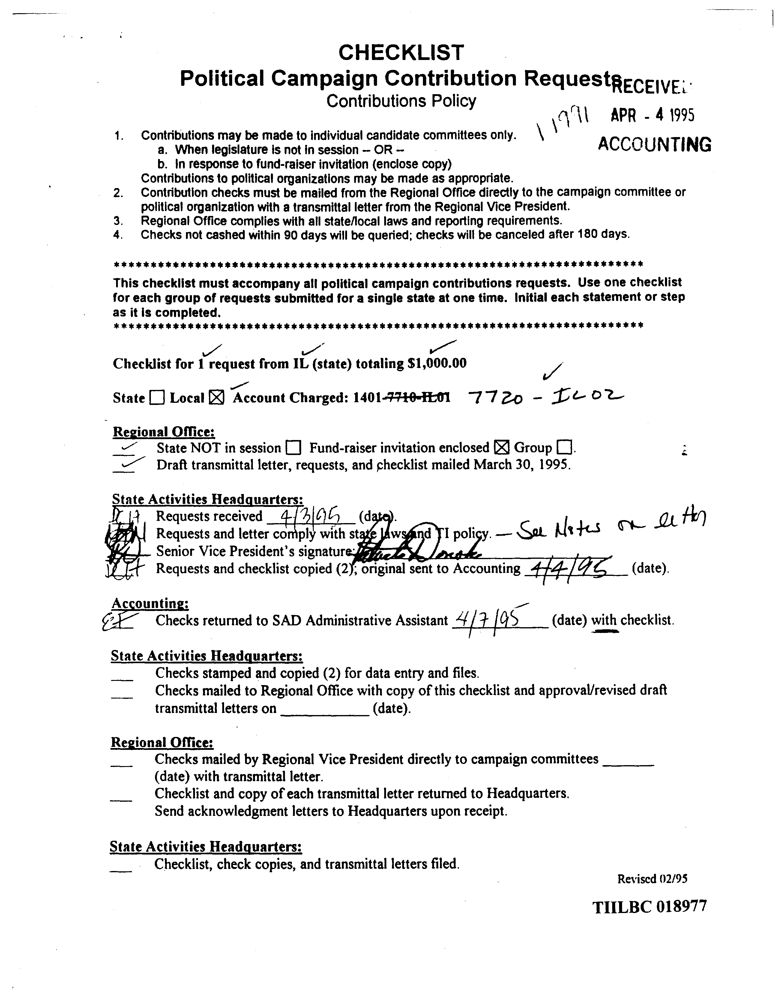 CHECKLIST
Political Campaign Contribution Requests
RECEIVE
Contributions Policy
APR - 4 1995
ACCOUNTING
1. Contributions may be made to individual candidate committees only.
a. When legislature is not in session -- OR --
b. In response to fund-raiser invitation (enclose copy)
Contributions to political organizations may be made as appropriate.
2. Contribution checks must be mailed from the Regional Office directly to the campaign committee or
political organization with a transmittal letter from the Regional Vice President.
3. Regional Office complies with all state/local laws and reporting requirements.
4. Checks not cashed within 90 days will be queried; checks will be canceled after 180 days.
************************************************************************
This checklist must accompany all political campaign contributions requests. Use one checklist
for each group of requests submitted for a single state at one time. Initial each statement or step
as it is completed.
************************************************************************
Checklist for 1 request from IL (state) totaling $1,000.00
State ☐ Local ☒ Account Charged: 1401-7710-IL01 7720 - IL02
Regional Office:
State NOT in session ☐ Fund-raiser invitation enclosed ☒ Group ☐.
Draft transmittal letter, requests, and checklist mailed March 30, 1995.
State Activities Headquarters:
Requests received 4/3/95 (date).
Requests and letter comply with state laws and TI policy. — See Notes on letter
Senior Vice President's signature
Requests and checklist copied (2); original sent to Accounting 4/4/95 (date).
Accounting:
Checks returned to SAD Administrative Assistant 4/7/95 (date) with checklist.
State Activities Headquarters:
Checks stamped and copied (2) for data entry and files.
Checks mailed to Regional Office with copy of this checklist and approval/revised draft
transmittal letters on ____________ (date).
Regional Office:
Checks mailed by Regional Vice President directly to campaign committees _______
(date) with transmittal letter.
Checklist and copy of each transmittal letter returned to Headquarters.
Send acknowledgment letters to Headquarters upon receipt.
State Activities Headquarters:
Checklist, check copies, and transmittal letters filed.
Revised 02/95
TIILBC 018977